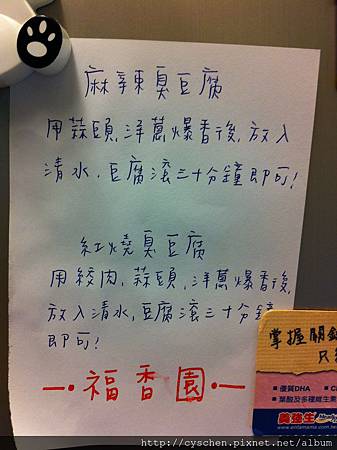 麻辣臭豆腐
用蒜頭,洋蔥爆香後,放入
清水,豆腐滾三十分鐘即可!
紅燒臭豆腐
用絞肉,蒜頭,洋蔥爆香後,
放入清水,豆腐滾三十分鐘
即可!
福香園
掌握關鍵
只
優質DHA
葉酸及多種維生素
www.enfamama.com
http://cyschen.pixnet.net/album